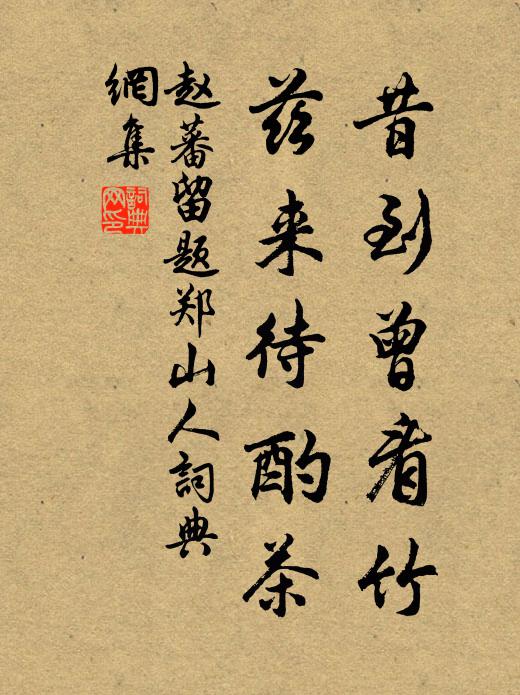 昔到曾看竹
兹来待酌茶
赵蕃留题郑山人詞典
網集
詞典網印